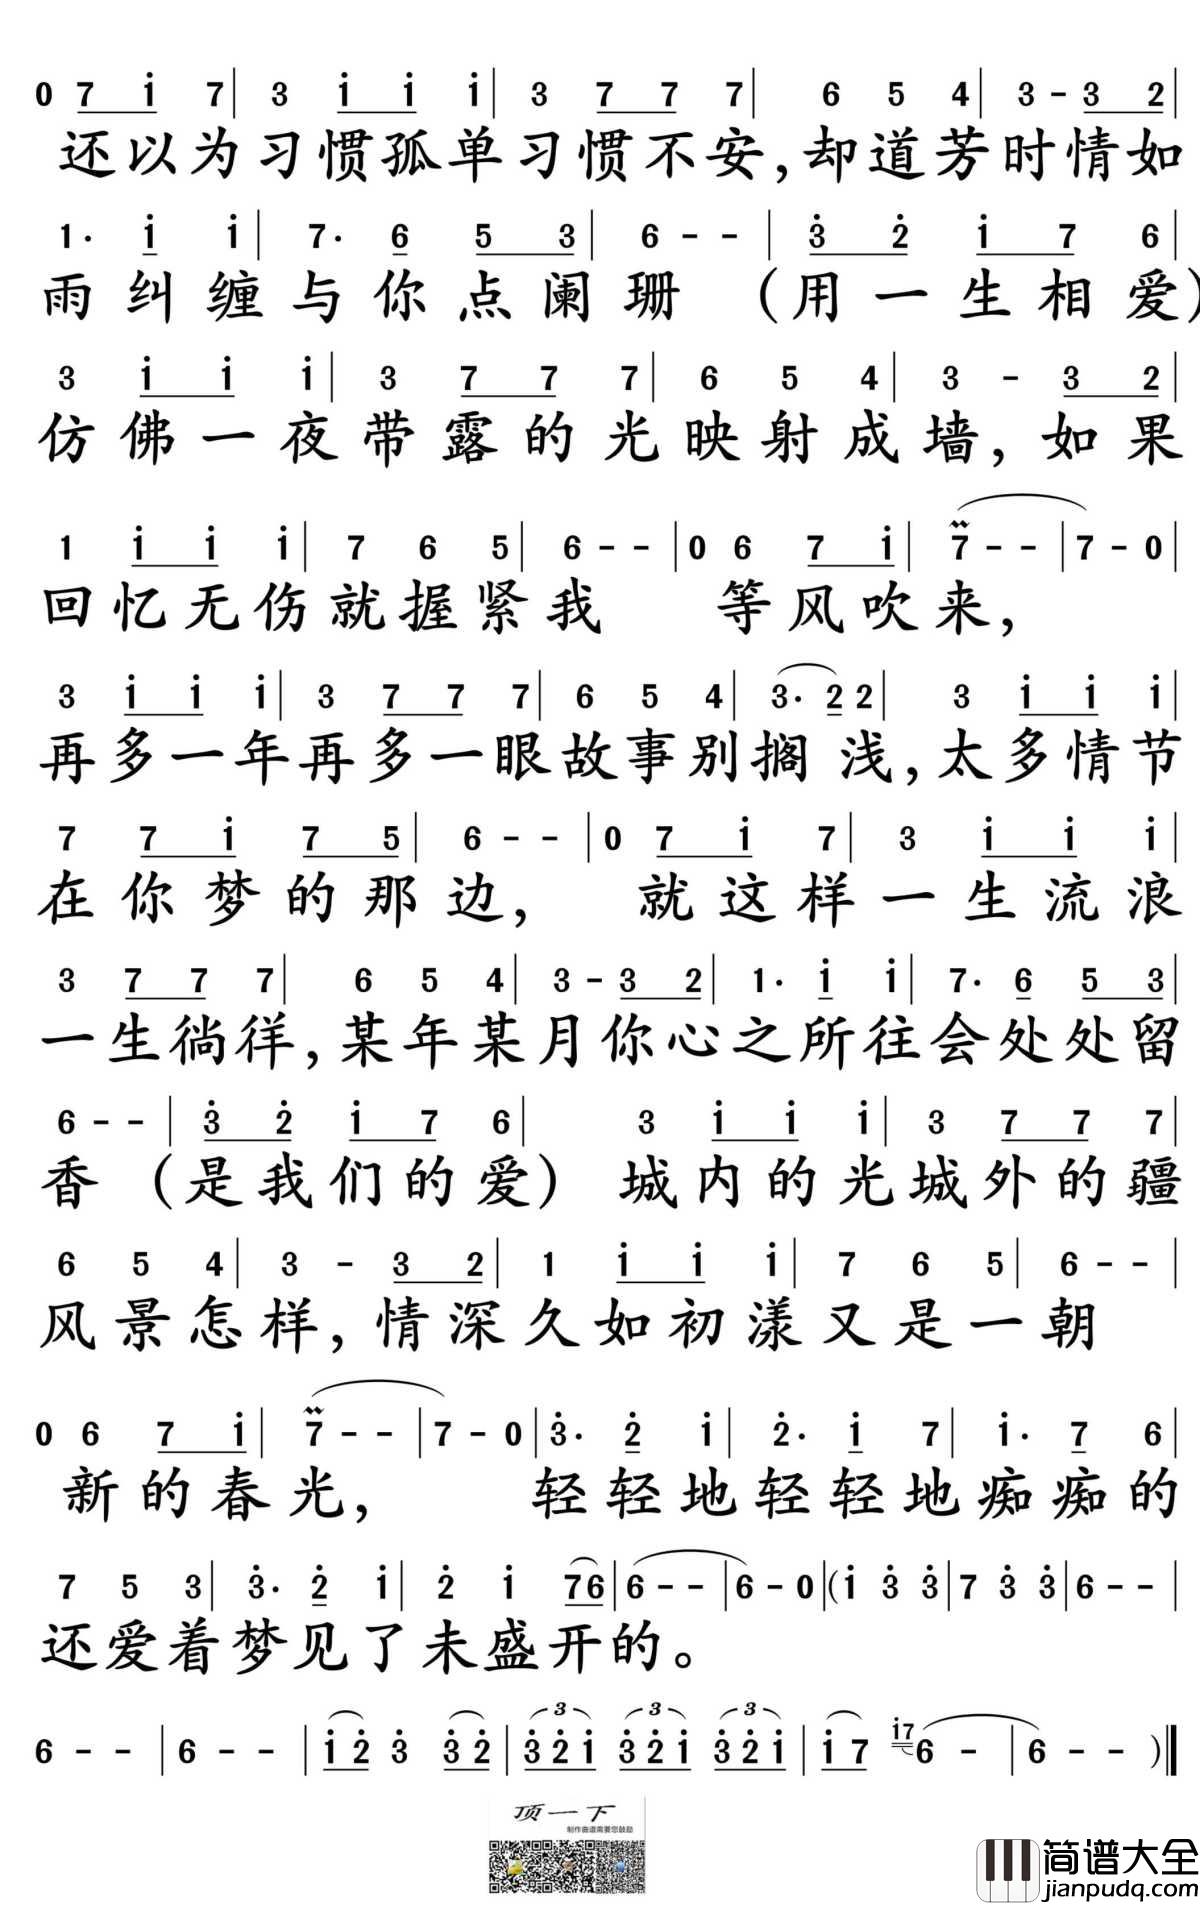 0 7 i̇ 7| 3 i̇ i̇ i̇| 3 7 7 7| 6 5 4| 3-3 2|
还以为习惯孤单习惯不安,却道芳时情如
1· i̇ i̇| 7· 6 5 3| 6 - - | 3̇ 2̇ i̇ 7 6|
雨纠缠与你点阑珊 (用一生相爱)
3 i̇ i̇ i̇| 3 7 7 7| 6 5 4| 3 - 3 2|
仿佛一夜带露的光映射成墙,如果
1 i̇ i̇ i̇| 7 6 5| 6 - - |0 6 7 i̇| 7 - - |7 - 0|
回忆无伤就握紧我 等风吹来,
3 i̇ i̇ i̇| 3 7 7 7| 6 5 4| 3· 2 2| 3 i̇ i̇ i̇|
再多一年再多一眼故事别搁浅,太多情节
7 7 i̇ 7 5| 6 - - |0 7 i̇ 7| 3 i̇ i̇ i̇|
在你梦的那边, 就这样一生流浪
3 7 7 7| 6 5 4| 3-3 2| 1· i̇ i̇| 7· 6 5 3|
一生徜徉,某年某月你心之所往会处处留
6 - - | 3̇ 2̇ i̇ 7 6| 3 i̇ i̇ i̇| 3 7 7 7|
香 (是我们的爱) 城内的光城外的疆
6 5 4| 3 - 3 2| 1 i̇ i̇ i̇| 7 6 5| 6 - - |
风景怎样,情深久如初漾又是一朝
0 6 7 i̇| 7 - - |7 - 0|3̇· 2̇ i̇| 2̇· i̇ 7| i̇· 7 6|
新的春光, 轻轻地轻轻地痴痴的
7 5 3| 3̇· 2̇ i̇| 2̇ i̇ 76|6 - - |6 - 0|(i̇ 3̇ 3̇|7 3̇ 3̇|6 - - |
还爱着梦见了未盛开的。
6 - - |6 - - | i̇ 2̇ 3̇ 3̇ 2̇|3̇ 2̇ i̇ 3̇ 2̇ i̇ 3̇ 2̇ i̇| i̇ 7 i̇7 6 - |6 - - )||
顶一下
制作曲谱需要您鼓励
简谱大全
jianpudq.com